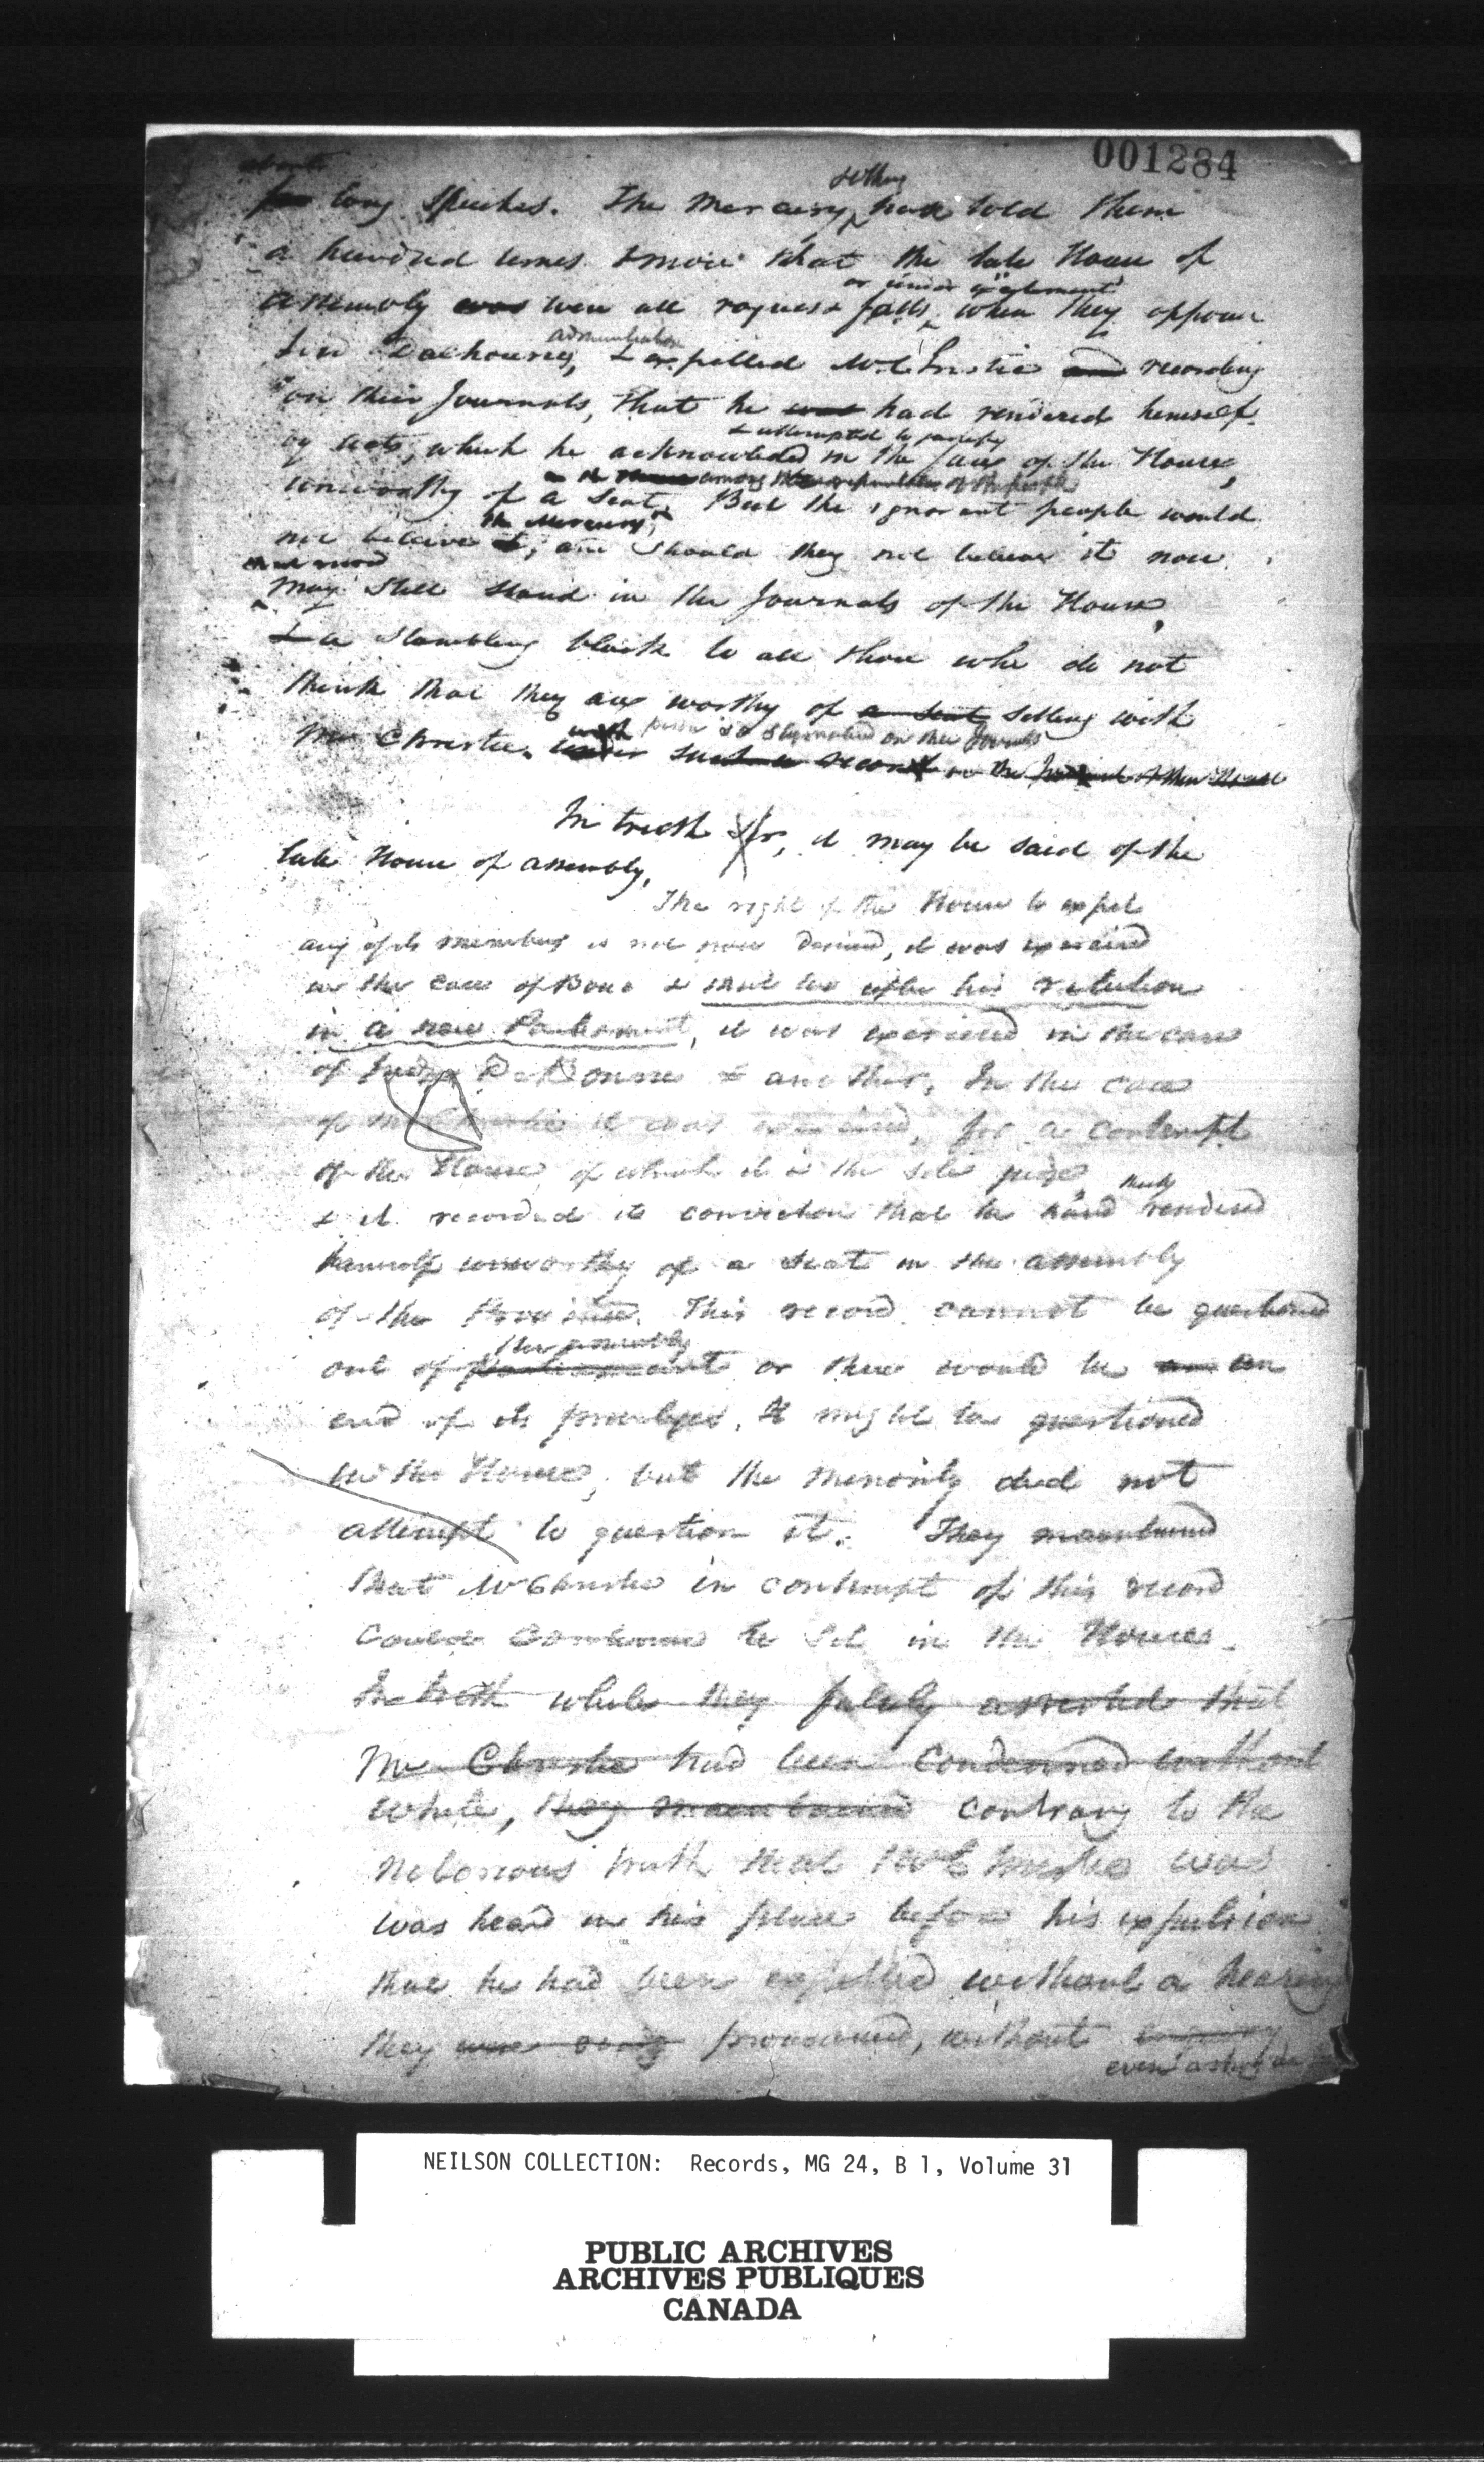 001284
about
long speeches. The Mercury has told them
a hundred times & more that the late House of
Assembly was were all rogues & when they oppose
administration
Lord Dalhousie, & expelled Mr Christie and recording
on their Journals, that he was had rendered himself
& attempted to justify
by acts, which he acknowledged in the face of the House,
unworthy of a seat. But the ignorant people would
the Mercury,
not believe it; and should they not believe it now
may still stand in the Journals of the House,
& a stumbling block to all those who do not
think that they are worthy of a seat sitting with
with person so stigmatized on their Journals
Mr Christie. under such a record in the Journal of the House
In truth Sir, it may be said of the
late House of assembly,
The right of the House to expel
any of its members is not now denied, it was exercised
in the case of & that too after his
in a new Parliament, it was exercised in the case
of Judge De Bonne & another, In the case
of Mr Christie it was exercised, for a contempt
of the House, of which it is the sole judge,
thereby
& it recorded its conviction that he had rendered
himself unworthy of a seat in the assembly
of the Province. This record cannot be questioned
the assembly
out of parliament or there would be an an
end of its privileges. It might be questioned
in the House, but the minority did not
attempt to question it. They maintained
that Mr Christie in contempt of this record
could continue to sit in the House.
In truth while they falsely asserted that
Mr Christie had been condemned without
while, they maintained contrary to the
notorious truth that Mr Christie was
was heard in his place before his expulsion
that he had been expelled without a hearing
they were pronounced, without enquiry
even
NEILSON COLLECTION: Records, MG 24, B 1, Volume 31
PUBLIC ARCHIVES
ARCHIVES PUBLIQUES
CANADA